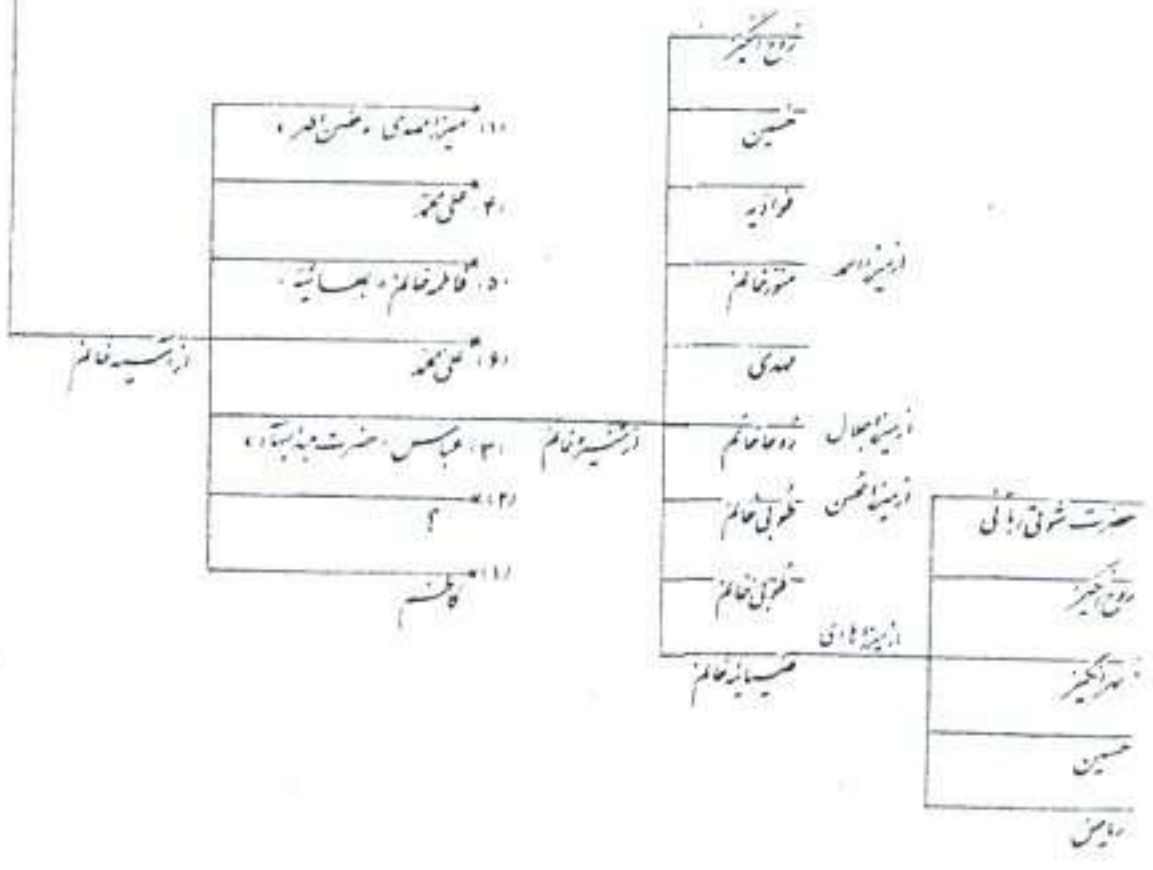 از آسیه خانم
(۱) میرزا مهدی «غصن اطهر»
(۴) علی محمد
(۵) فاطمه خانم «بهائیه»
(۶) علی محمد
(۳) عباس «حضرت عبدالبهآء»
(۲) ؟
(۱) کاظم
از منیره خانم
روح انگیز
حسین
فوادیه
منور خانم
مهدی
روحا خانم
طوبی خانم
طوبی خانم
ضیائیه خانم
از میرزا احمد
از میرزا جلال
از میرزا محسن
از میرزا هادی
حضرت شوقی ربانی
روح انگیز
مهرانگیز
حسین
ریاض